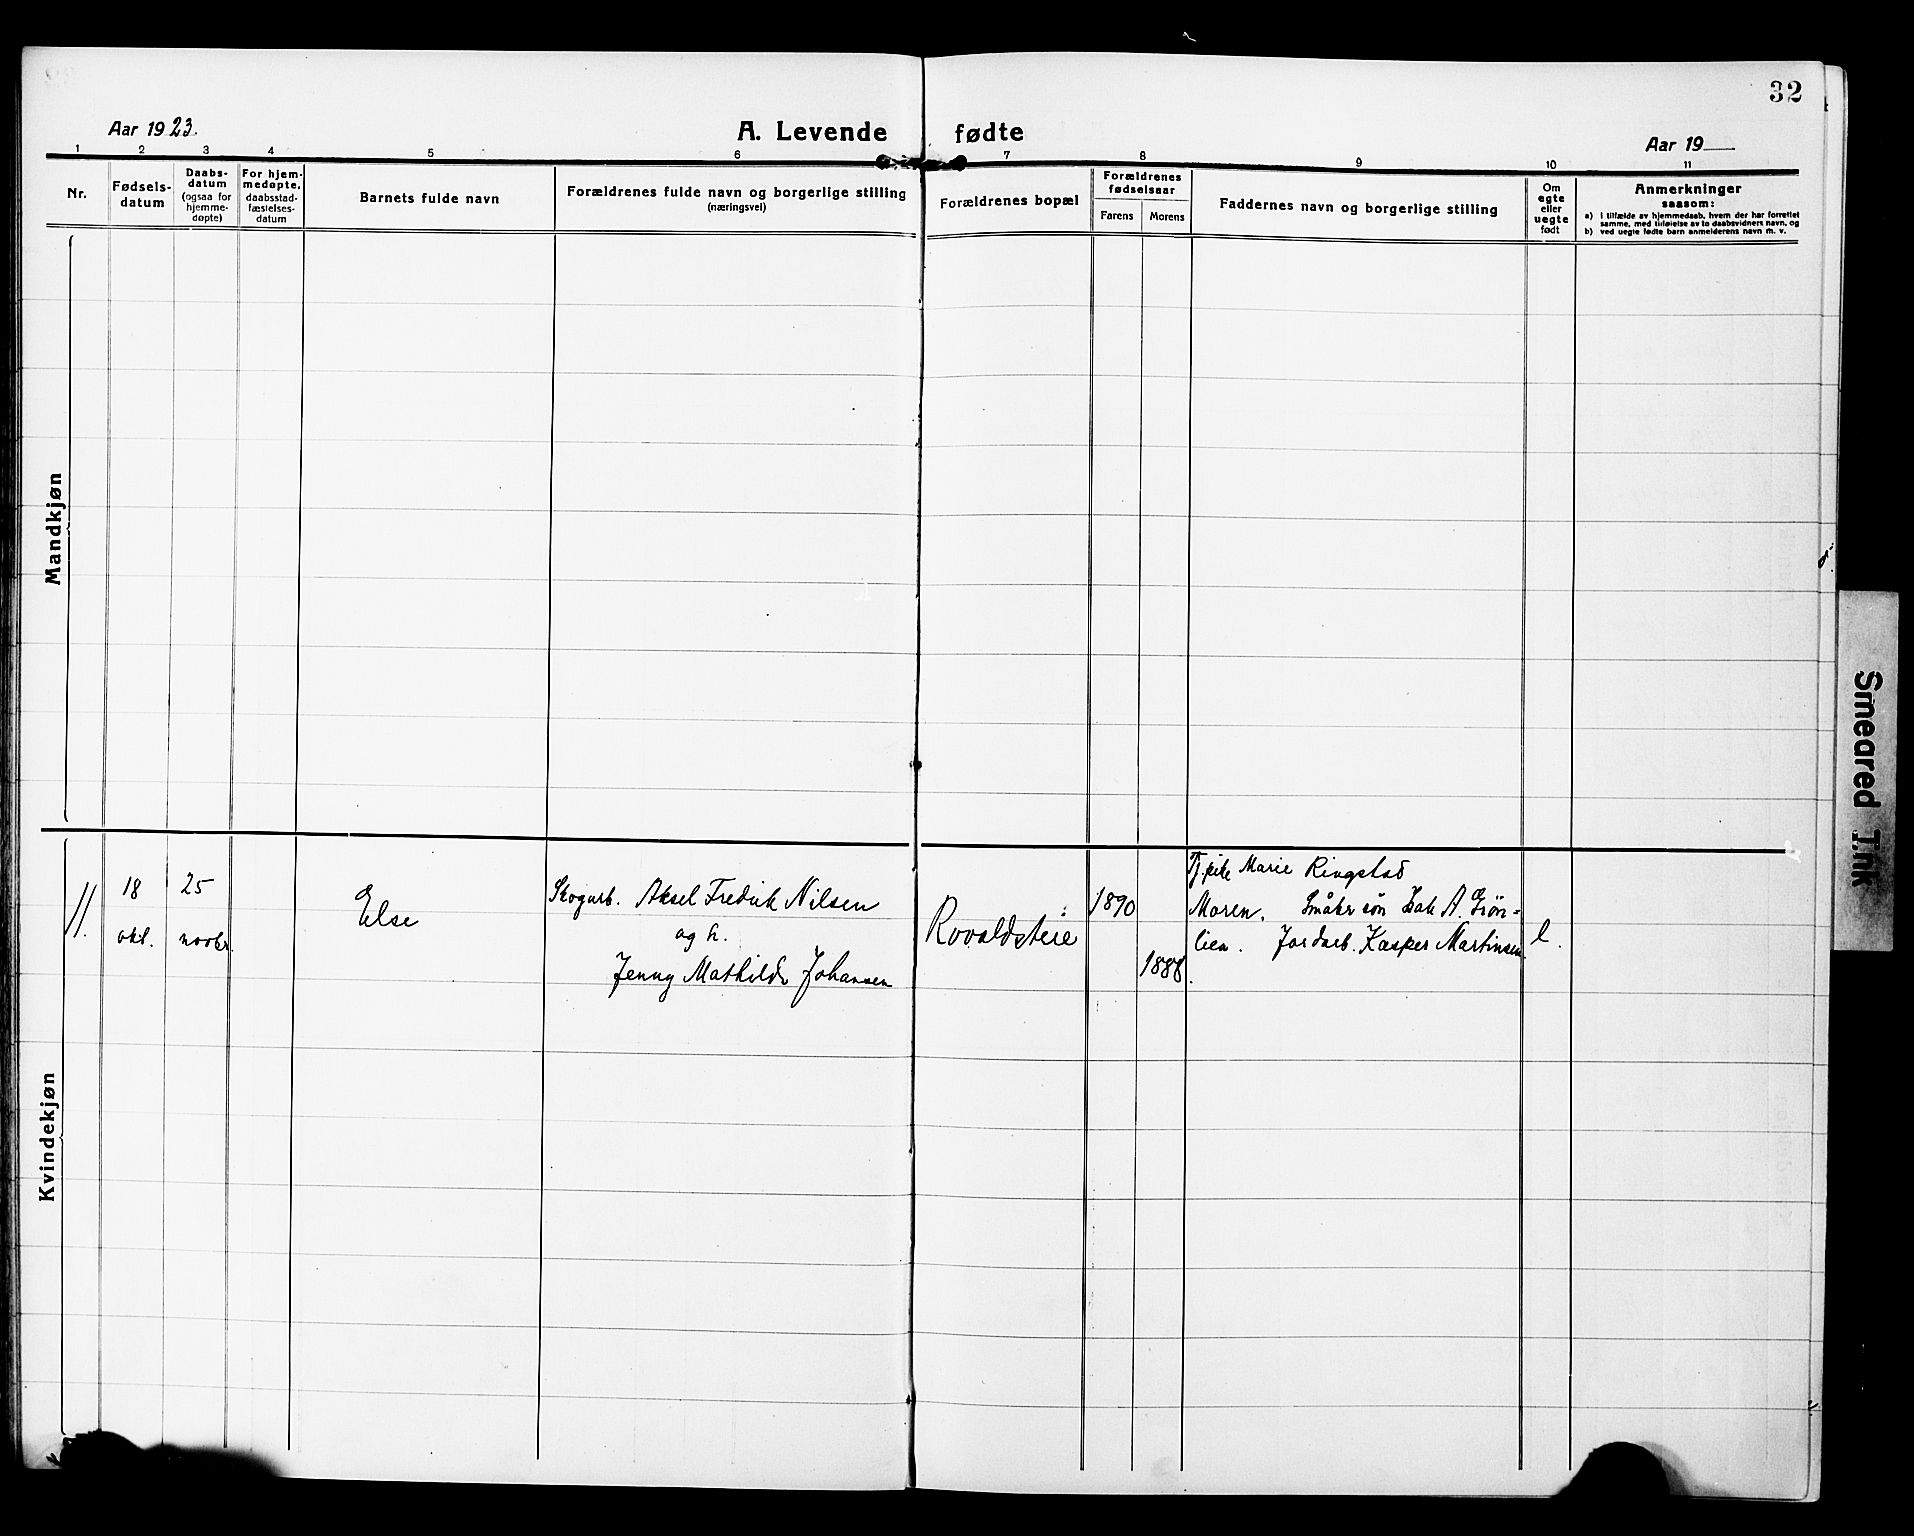 32
Aar 1923.
A. Levende fødte
Aar 19
1 2 3 4 5 6 7 8 9 10 11
Nr.
Fødsels-
datum
Daabs-
datum
(ogsaa for
hjemme-
døpte)
For hjem-
medøpte,
daabsstad-
fæstelses-
datum
Barnets fulde navn
Forældrenes fulde navn og borgerlige stilling
(næringsvei)
Forældrenes bopæl
Forældrenes
fødselsaar
Farens Morens
Faddernes navn og borgerlige stilling
Om
egte
eller
uegte
født
Anmerkninger
saasom:
a) i tilfælde av hjemmedaab, hvem der har forrettet
samme, med tilføielse av to daabsvidners navn, og
b) ved uegte fødte barn anmelderens navn m. v.
Mandkjøn
Kvindekjøn
11.
18
okt.
25
novbr.
Else
Skogarb. Aksel Fredrik Nilsen
og h.
Jenny Mathilde Johansen
Rovoldsteie
1890
1888.
Tj.pike Marie Ringstad
Moren. Småbr søn A. Grøn-
lien. Jordarb. Kasper Martinsen.
Smeared Ink